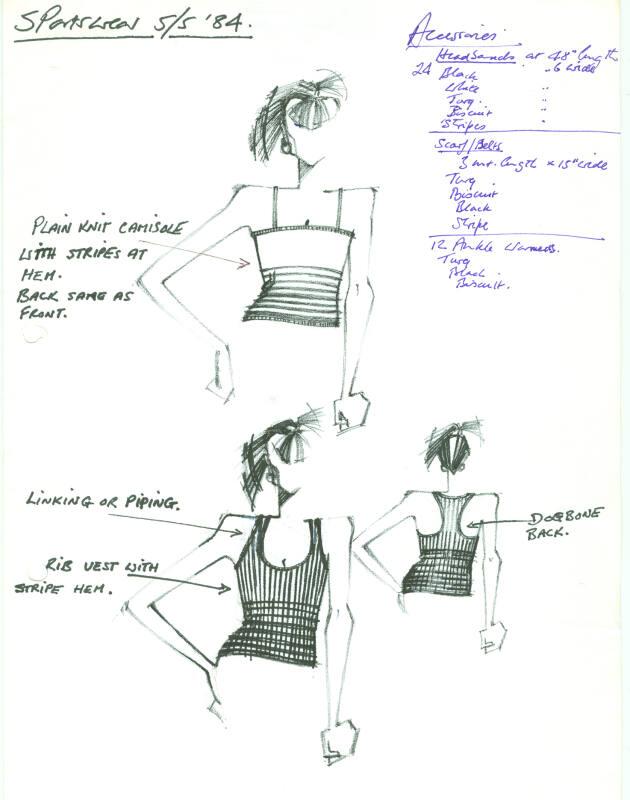 Sportswear S/S '84.
Accessories
Headbands at 48" length
24 Black " 6 wide
White "
Turq. "
Biscuit "
Stripes "
Scarf/Belts
3 mt. length x 15" wide
Turq
Biscuit
Black
Stripe
12 Ankle Warmers.
Turq
Black.
Biscuit.
PLAIN KNIT CAMISOLE
WITH STRIPES AT
HEM.
BACK SAME AS
FRONT.
LINKING OR PIPING.
RIB VEST WITH
STRIPE HEM.
DOGBONE
BACK.